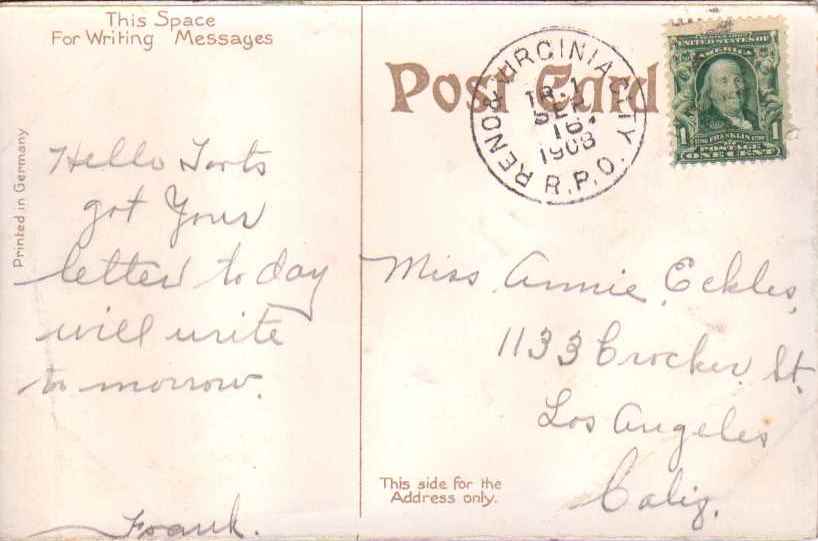 This Space
For Writing Messages
Printed in Germany
Hello Toots
got Your
letter to day
will write
to morrow.
Frank.
Post Card
RENO & VIRGINIA CITY
TR. 1
SEP
16
1908
R.P.O.
UNITED STATES OF
AMERICA
1 FRANKLIN 1
POSTAGE
ONE CENT
Miss Annie Eckles,
1133 Crocker St.
Los Angeles
Calif.
This side for the
Address only.